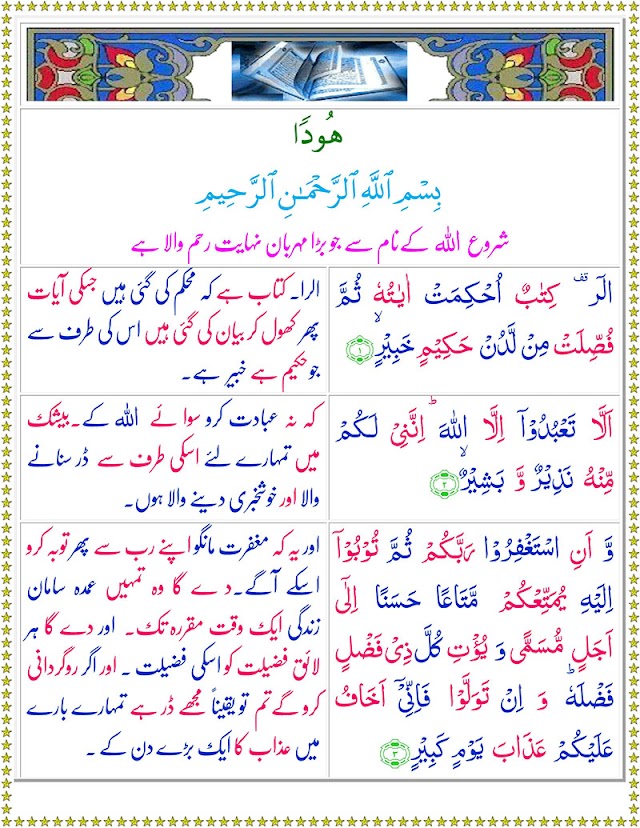 هُودًا
بِسْمِ ٱللَّهِ ٱلرَّحْمَـٰنِ ٱلرَّحِيمِ
شروع اللہ کے نام سے جو بڑا مہربان نہایت رحم والا ہے
الٓرٰ ۟ قف كِتٰبٌ اُحْكِمَتْ اٰيٰتُهٗ ثُمَّ
فُصِّلَتْ مِنْ لَّدُنْ حَكِيْمٍ خَبِيْرٍۙ ﴿۱﴾
الرا۔ کتاب ہے کہ محکم کی گئی ہیں جسکی آیات
پھر کھول کر بیان کی گئی ہیں اس کی طرف سے
جو حکیم ہے خبیر ہے۔
اَلَّا تَعْبُدُوْۤا اِلَّا اللّٰهَ ؕ اِنَّنِىْ لَـكُمْ
مِّنْهُ نَذِيْرٌ وَّ بَشِيْرٌۙ ﴿۲﴾
کہ نہ عبادت کرو سوائے اللہ کے۔ بیشک
میں تمہارے لئے اسکی طرف سے ڈر سنانے
والا اور خوشخبری دینے والا ہوں۔
وَّ اَنِ اسْتَغْفِرُوْا رَبَّكُمْ ثُمَّ تُوْبُوْۤا
اِلَيْهِ يُمَتِّعْكُمْ مَّتَاعًا حَسَنًا اِلٰٓى
اَجَلٍ مُّسَمًّى وَ يُؤْتِ كُلَّ ذِىْ فَضْلٍ
فَضْلَهٗ ؕ وَ اِنْ تَوَلَّوْا فَاِنِّىْۤ اَخَافُ
عَلَيْكُمْ عَذَابَ يَوْمٍ كَبِيْرٍ ﴿۳﴾
اور یہ کہ مغفرت مانگو اپنے رب سے پھر توبہ کرو
اسکے آگے۔ دے گا وہ تمہیں عمدہ سامان
زندگی ایک وقت مقررہ تک۔ اور دے گا ہر
لائق فضیلت کو اسکی فضیلت ۔ اور اگر روگردانی
کرو گے تم تو یقیناً مجھے ڈر ہے تمہارے بارے
میں عذاب کا ایک بڑے دن کے ۔